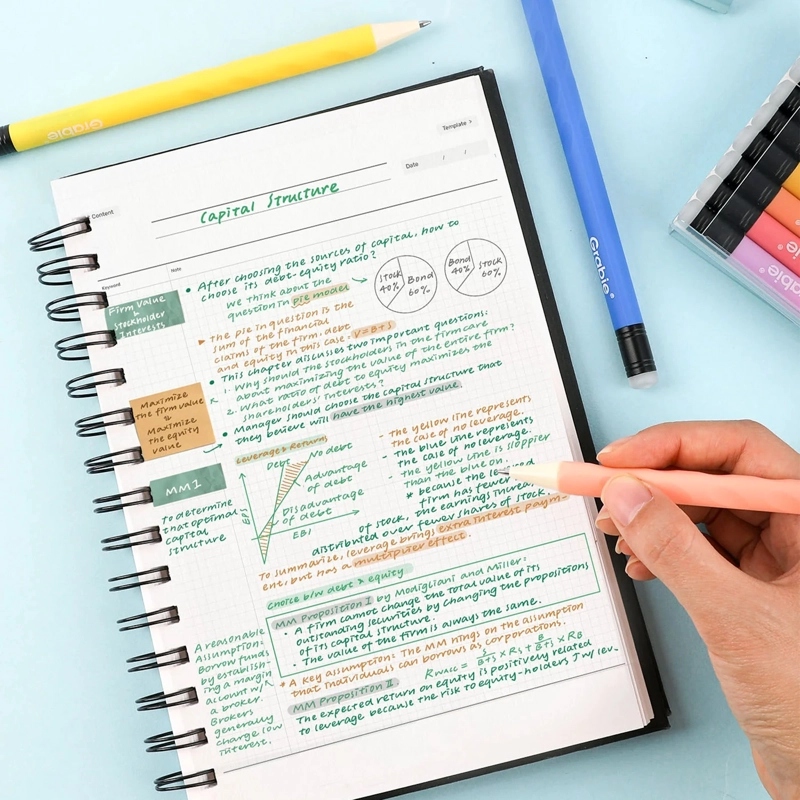 Grabie®
Template >
Content
Date / /
Capital Structure
Keyword
Note
Firm Value
&
Stockholder
Interests
• After choosing the sources of capital, how to
choose its debt-equity ratio?
We think about the
question in pie model
Stock
40%
Bond
60%
Bond
40%
Stock
60%
The pie in question is the
sum of the financial
claims of the firm, debt
and equity in this case. V=B+S
• This chapter discusses two important questions:
1. Why should the stockholders in the firm care
about maximizing the value of the entire firm?
2. What ratio of debt to equity maximizes the
shareholders' interests?
• Manager should choose the capital structure that
they believe will have the highest value.
Maximize
the firm value
Maximize
the equity
value
MM1
To determine
that optimal
capital
structure
Leverage & Return
Debt
No debt
Advantage
of debt
Disadvantage
of debt
EPS
EBI
- The yellow line represents
the case of no leverage.
- The blue line represents
the case of no leverage.
- The yellow line is sloppier
than the blue on
* because the
firm has fewer
of stock, the earnings increa
distributed over fewer shares of stock.
To summarize, leverage brings extra interest paym-
ent, but has a multiplier effect.
Choice b/w debt & equity
MM Proposition I by Modigliani and Miller:
• A firm cannot change the total value of its
outstanding securities by changing the propositions
of its capital structure.
• The value of the firm is always the same.
* A key assumption: The MM hings on the assumption
that individuals can borrows as corporations.
A reasonable
Assumption:
Borrow funds
by establish-
ing a margin
account w/
a broker.
Brokers
generally
charge low
interest.
MM Proposition II
RWACC = S/B+S × Rs + B/B+S × RB
The expected return on equity is positively related
to leverage because the risk to equity-holders ↑ w/ lev.
Grabie®